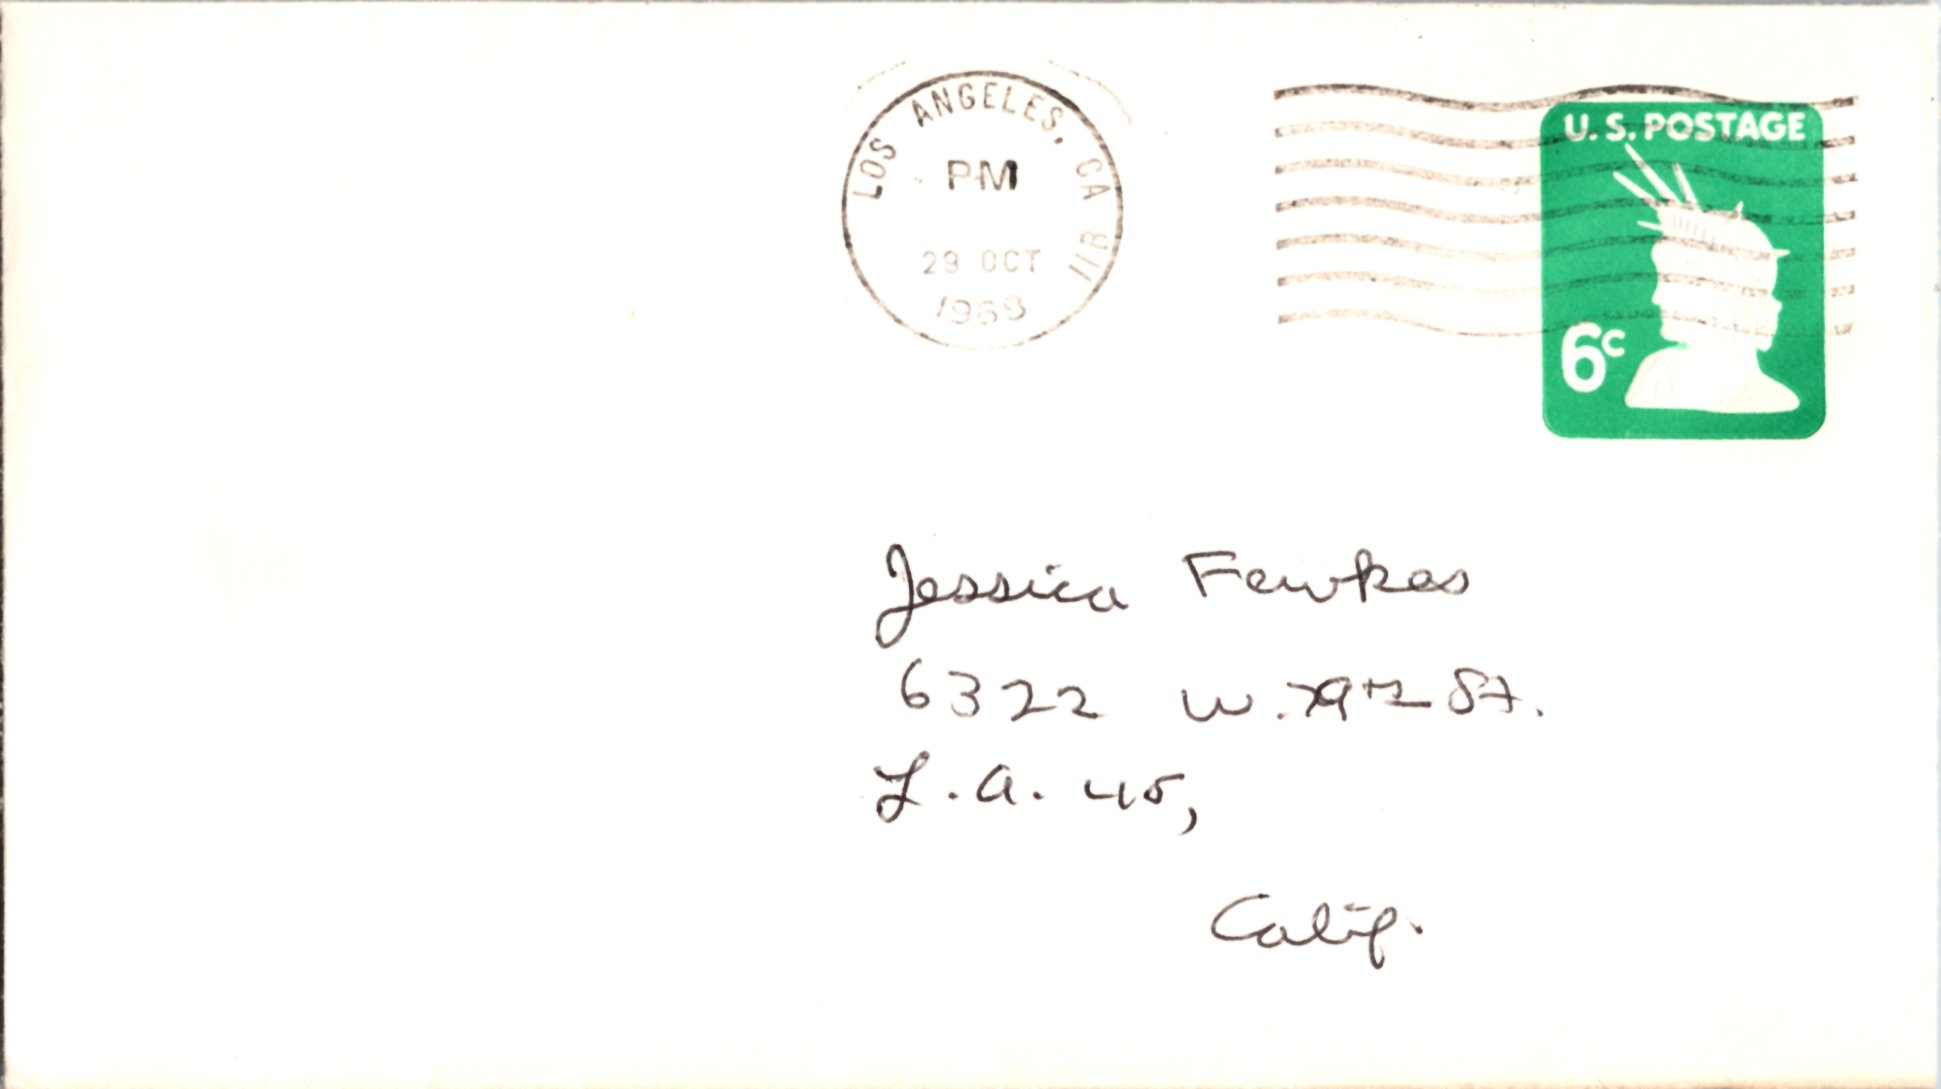 LOS ANGELES, CA 11B
PM
29 OCT
1968
U.S. POSTAGE
6c
Jessica Fewkes
6322 W. 79th St.
L.A. 45,
Calif.